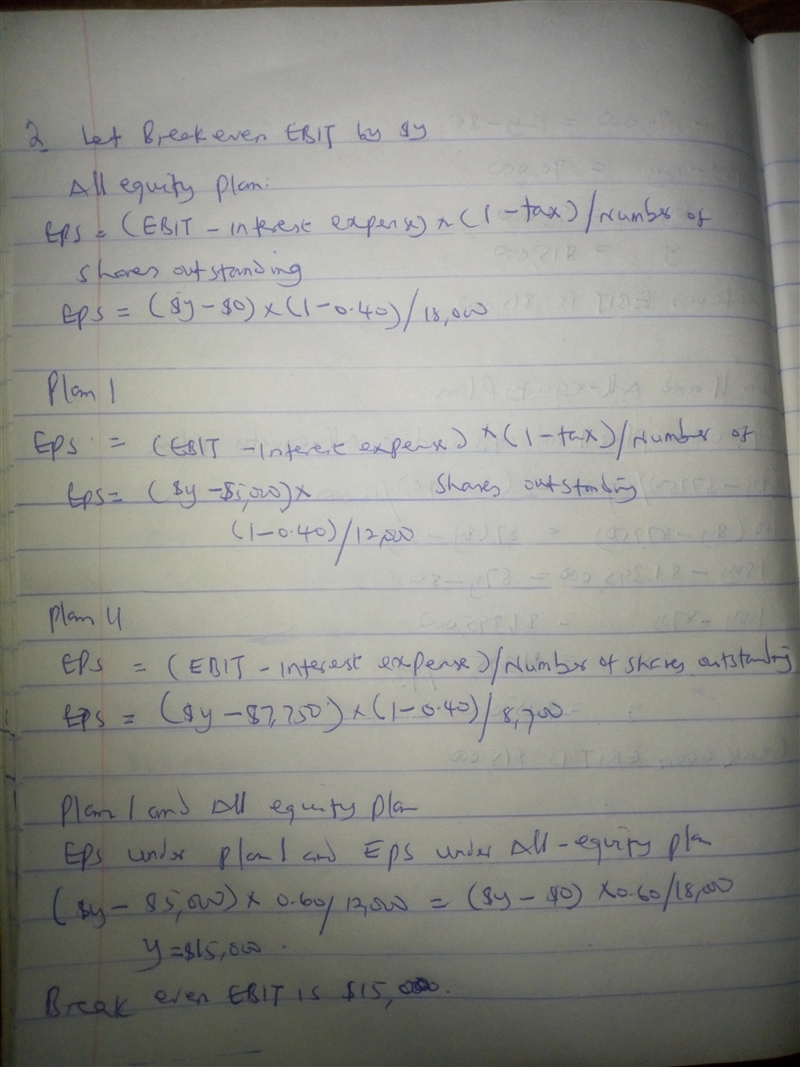 2 Let Break even EBIT by $y
All equity plan:
EPS = (EBIT - interest expense) × (1 - tax) / Number of
shares outstanding
EPS = ($y - $0) × (1 - 0.40) / 18,000
Plan 1
EPS = (EBIT - interest expense) × (1 - tax) / Number of
EPS = ($y - $5,000) × shares outstanding
(1 - 0.40) / 12,000
Plan 11
EPS = (EBIT - interest expense) / Number of shares outstanding
EPS = ($y - $7,750) × (1 - 0.40) / 8,700
Plan 1 and All equity plan
EPS under plan 1 and EPS under All-equity plan
($y - $5,000) × 0.60 / 12,000 = ($y - $0) × 0.60 / 18,000
y = $15,000.
Break even EBIT is $15,000.